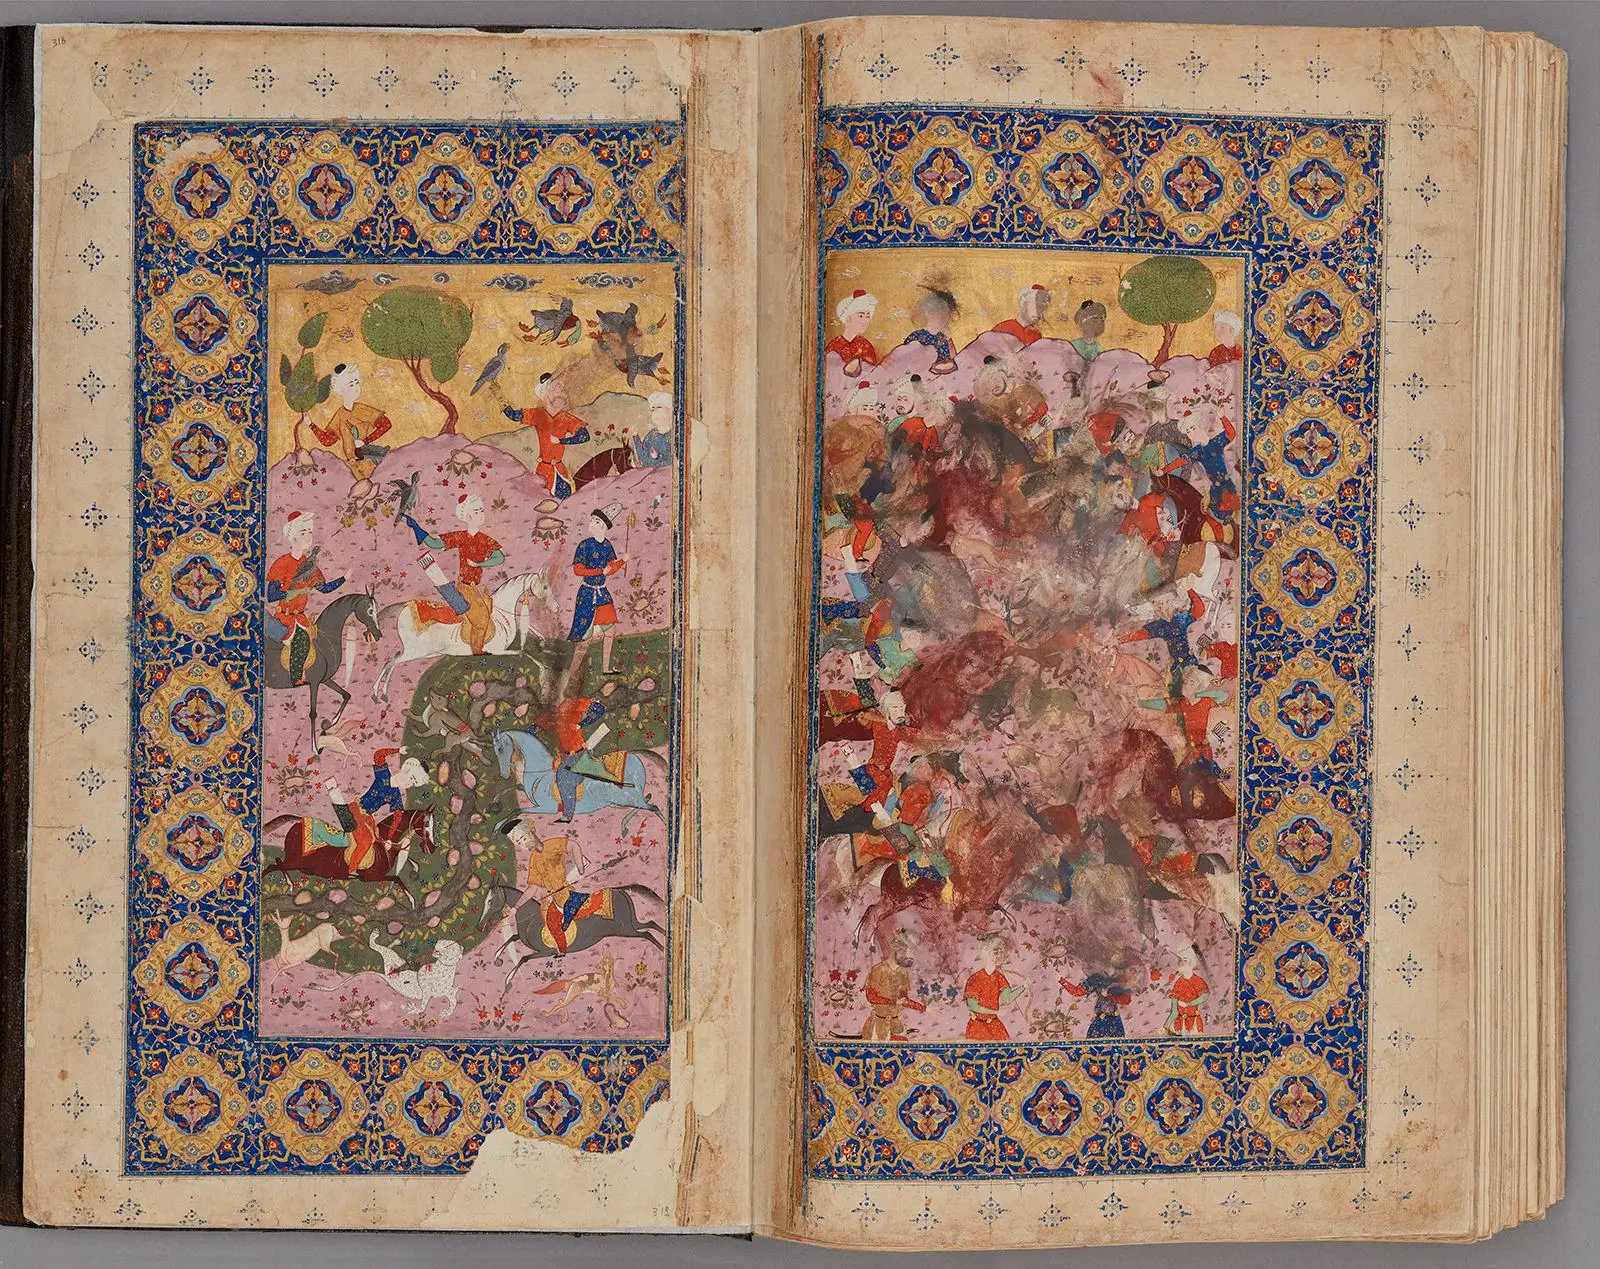 318
312